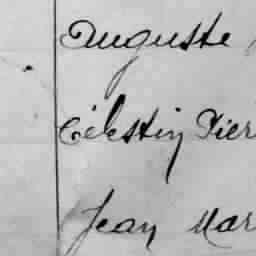 Auguste,
Célestin Pier
Jean Mar